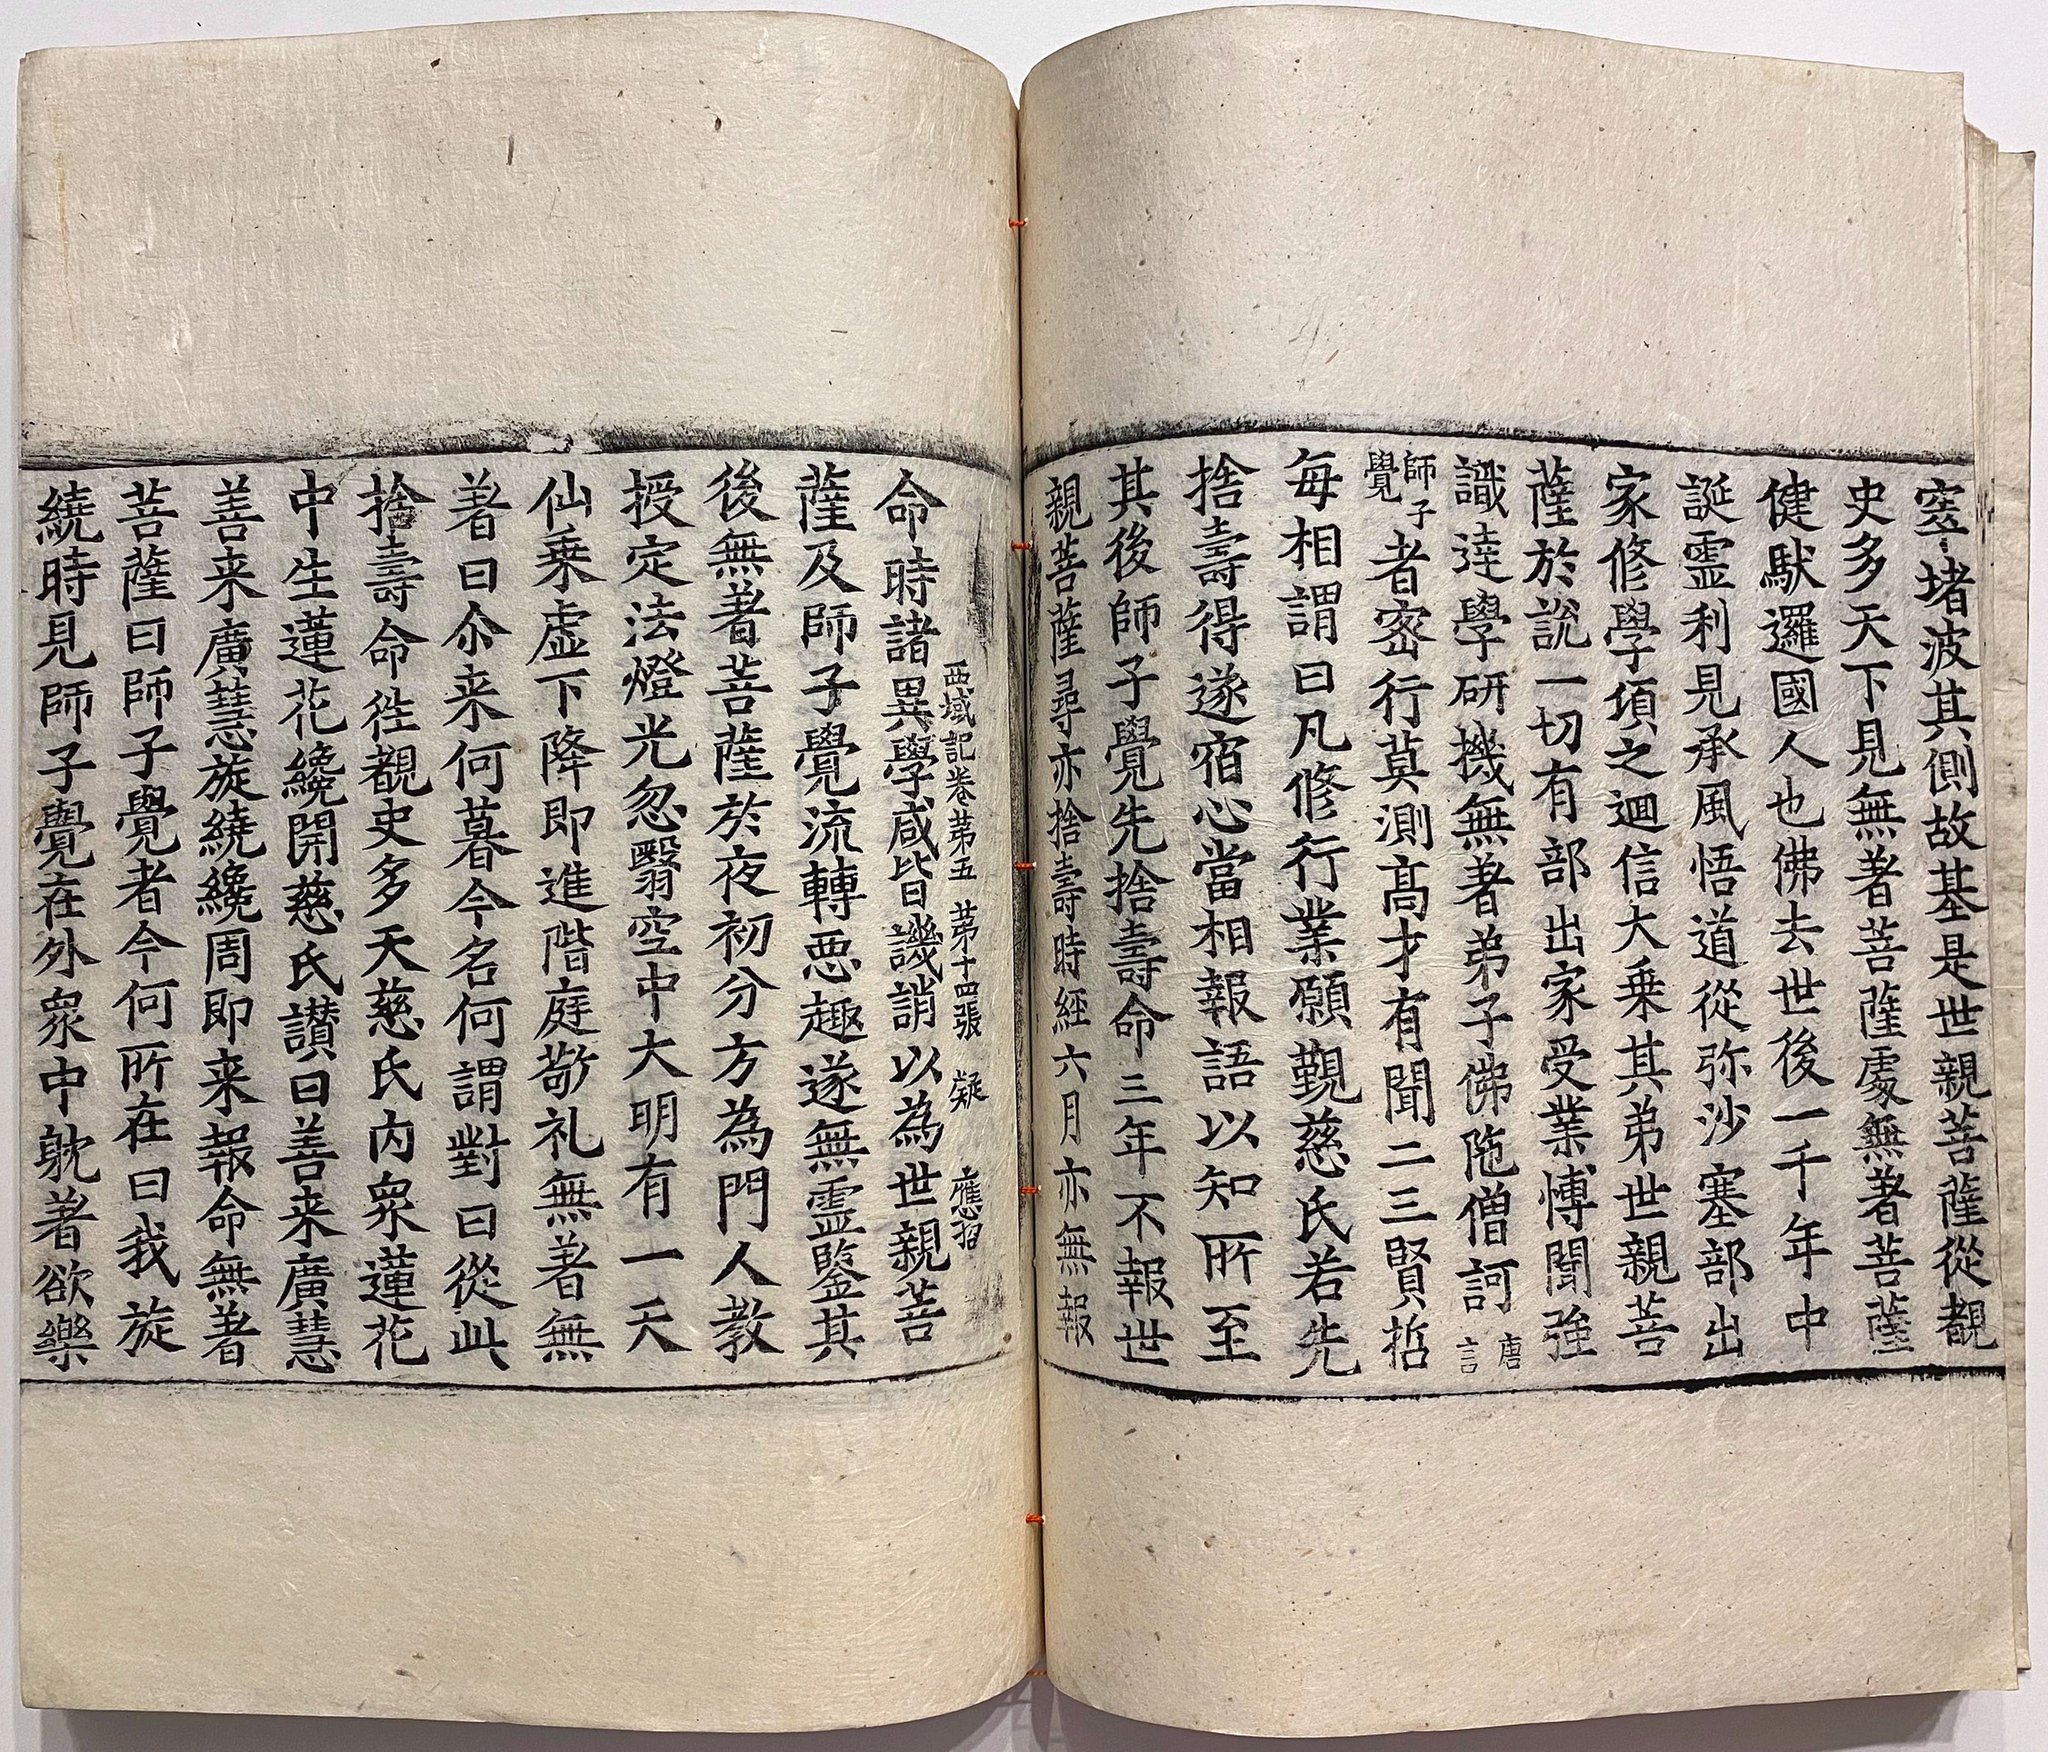 窣堵波其側故基是世親菩薩從覩
史多天下見無著菩薩處無著菩薩
健馱邏國人也佛去世後一千年中
誕靈利見承風悟道從弥沙塞部出
家修學頃之迴信大乗其弟世親菩
薩於說一切有部出家受業博聞強
識達學研機無著弟子佛陁僧訶唐言
師子覺者密行莫測髙才有聞二三賢哲
每相謂曰凡修行業願覲慈氏若先
捨壽得遂宿心當相報語以知所至
其後師子覺先捨壽命三年不報世
親菩薩尋亦捨壽時經六月亦無報
西域記卷第五 第十四張 凝 應招
命時諸異學咸皆譏誚以為世親菩
薩及師子覺流轉惡趣遂無靈鑒其
後無著菩薩於夜初分方為門人教
授定法燈光忽翳空中大明有一天
仙乗虛下降即進階庭敬礼無著無
著曰尒来何暮今名何謂對曰從此
捨壽命徃覩史多天慈氏内衆蓮花
中生蓮花纔開慈氏讃曰善来廣慧
善来廣慧旋繞纔周即来報命無著
菩薩曰師子覺者今何所在曰我旋
繞時見師子覺在外衆中躭著欲樂